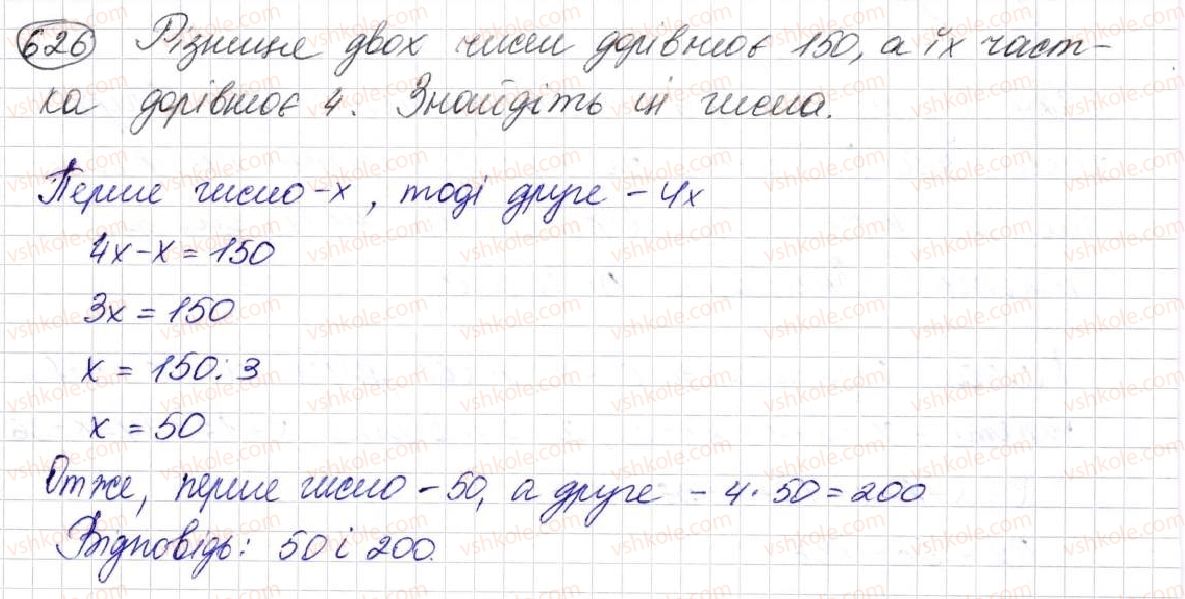 626 Різниця двох чисел дорівнює 150, а їх част-
ка дорівнює 4. Знайдіть ці числа.
Перше число - x, тоді друге - 4x
4x - x = 150
3x = 150
x = 150 : 3
x = 50
Отже, перше число - 50, а друге - 4 · 50 = 200
Відповідь: 50 і 200.